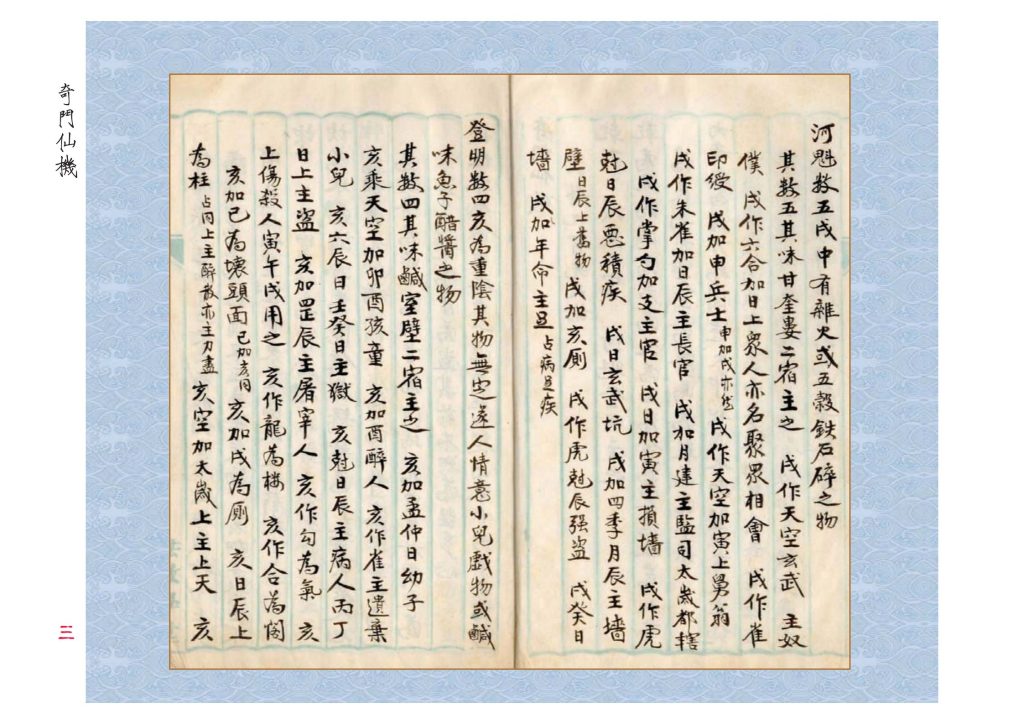 奇門仙機
河魁數五戌中有雜火或五穀鉄石碎之物
其數五其味甘奎婁二宿主之 戌作天空玄武 主奴
僕 戌作六合加日上衆人亦名聚眾相會 戌作雀
印綬 戌加申兵士申加戌亦然 戌作天空加寅上舅翁
戌作朱雀加日辰主長官 戌加月建主監司太歲都轄
戌作掌勾加支主官 戌日加寅主損墻 戌作虎
尅日辰惡積疾 戌日玄武坑 戌加四季月辰主墻
壁日辰上舊物 戌加亥厠 戌作虎尅辰强盗 戌癸日
墻 戌加年命主足占病足疾
登明數四亥為重陰其物無定遂人情意小兒戲物或鹹
味魚子醋醬之物
其數四其味鹹室壁二宿主之 亥加孟仲日幼子
亥乘天空加卯酉孩童 亥加酉醉人 亥作雀主遺棄
小兒 亥六辰日 壬癸日主獄 亥尅日辰主病人丙丁
日上主盗 亥加罡辰主屠宰人 亥作勾為氣 亥
上傷殺人寅午戌用之 亥作龍為楼 亥作合為閣
亥加巳為壞頭面巳加亥同 亥加戌為厠 亥日辰上
為柱占同上主醉散亦主力盡 亥空加太歲上主上天 亥
三